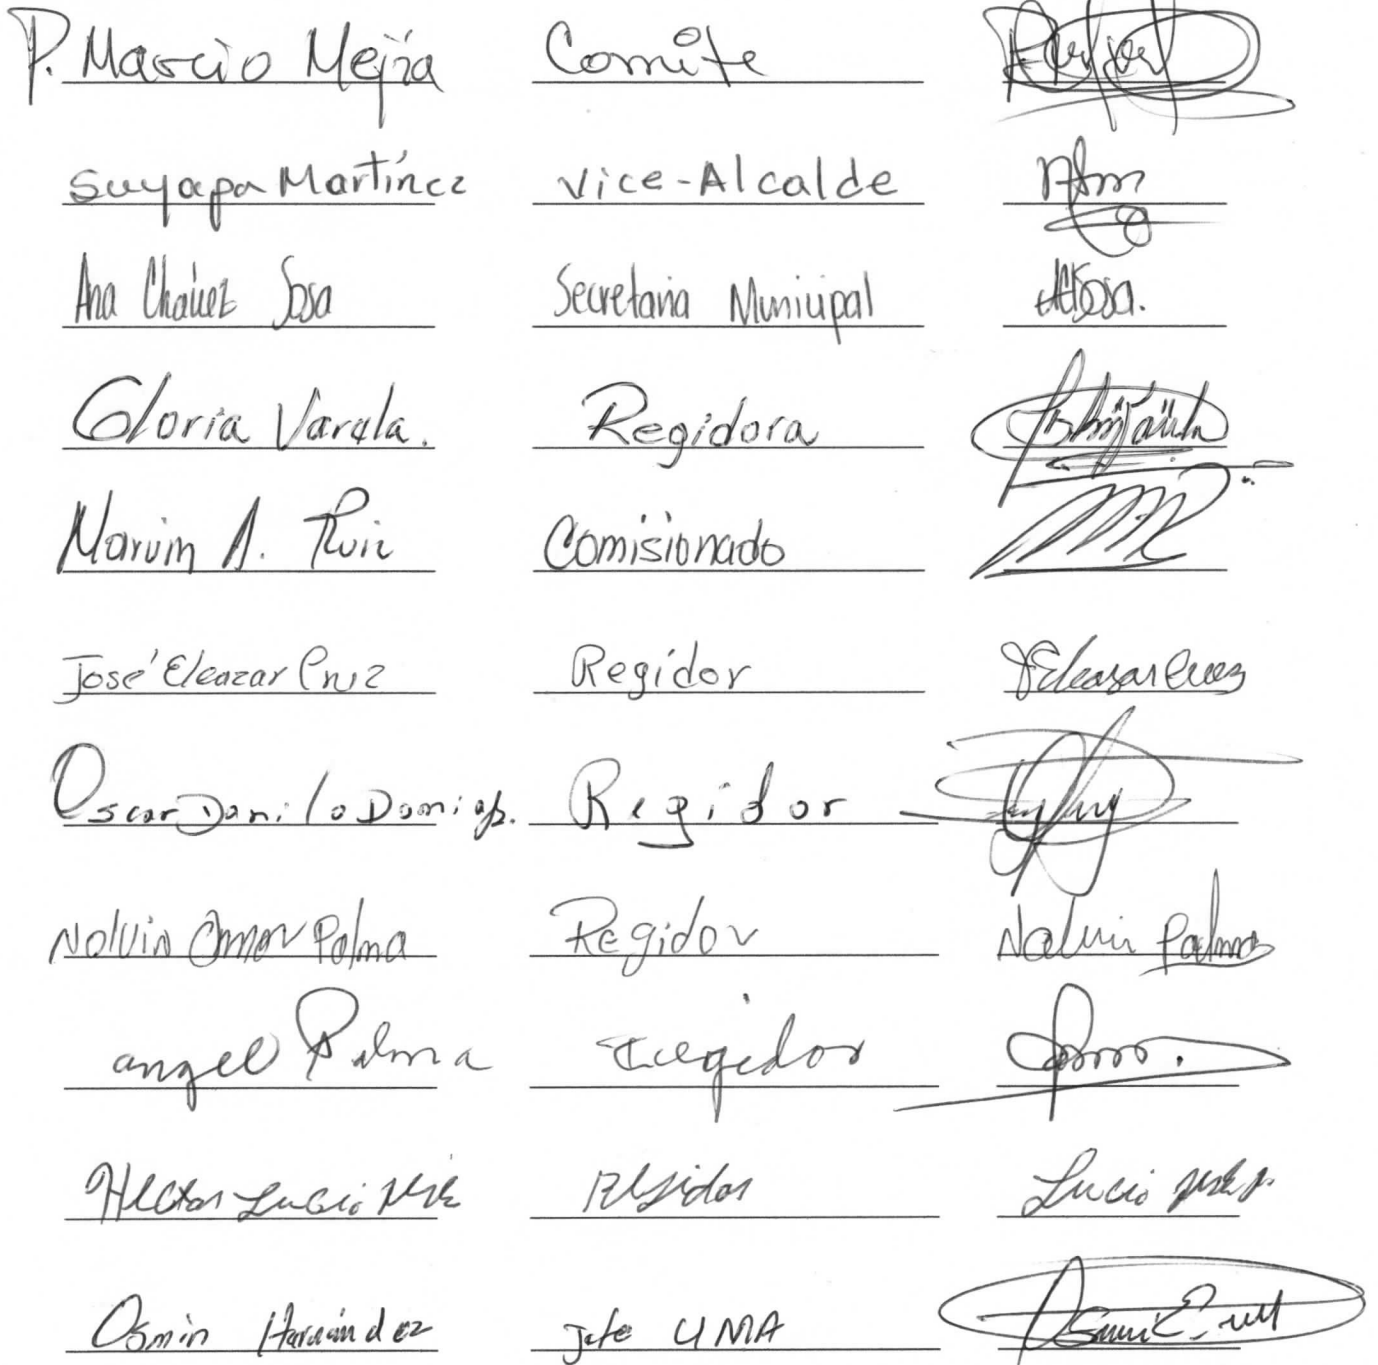 P. Marcio Mejía Comite
Suyapa Martínez Vice-Alcalde
Ana Chávez Sosa Secretaria Municipal
Gloria Varela. Regidora
Marvin A. Ruiz Comisionado
José Eleazar Cruz Regidor J Eleazar Cruz
Oscar Danilo Regidor
Nolvin Omar Palma Regidor Nolvin Palma
angel Palma regidor
Hector Lucio Regidor Lucio
Osmin Hernández Jefe UMA